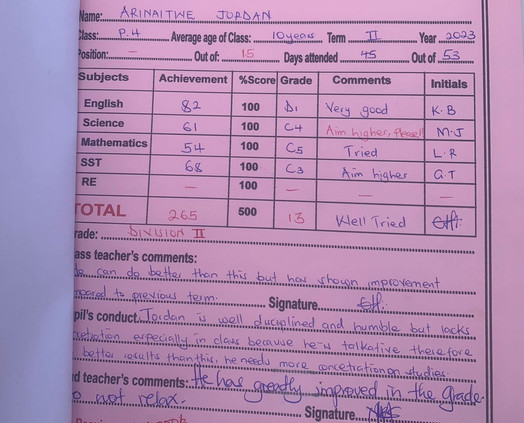 Name: ARINAITWE JORDAN
Class: P.4 Average age of Class: 10 years Term II Year 2023
Position: – Out of: 15 Days attended 45 Out of 53
Subjects Achievement %Score Grade Comments Initials
English 82 100 D1 Very good K.B
Science 61 100 C4 Aim higher, please! M.J
Mathematics 54 100 C5 Tried L.R
SST 68 100 C3 Aim higher G.T
RE – 100 – – –
TOTAL 265 500 13 Well Tried
rade: DIVISION II
ass teacher's comments:
can do better than this but has shown improvement
mpared to previous term. Signature
pil's conduct: Jordan is well disciplined and humble but lacks
especially in class because he is talkative therefore
better results than this, he needs more concetration on studies.
d teacher's comments: He has greatly improved in the grade
o not relax.
Signature